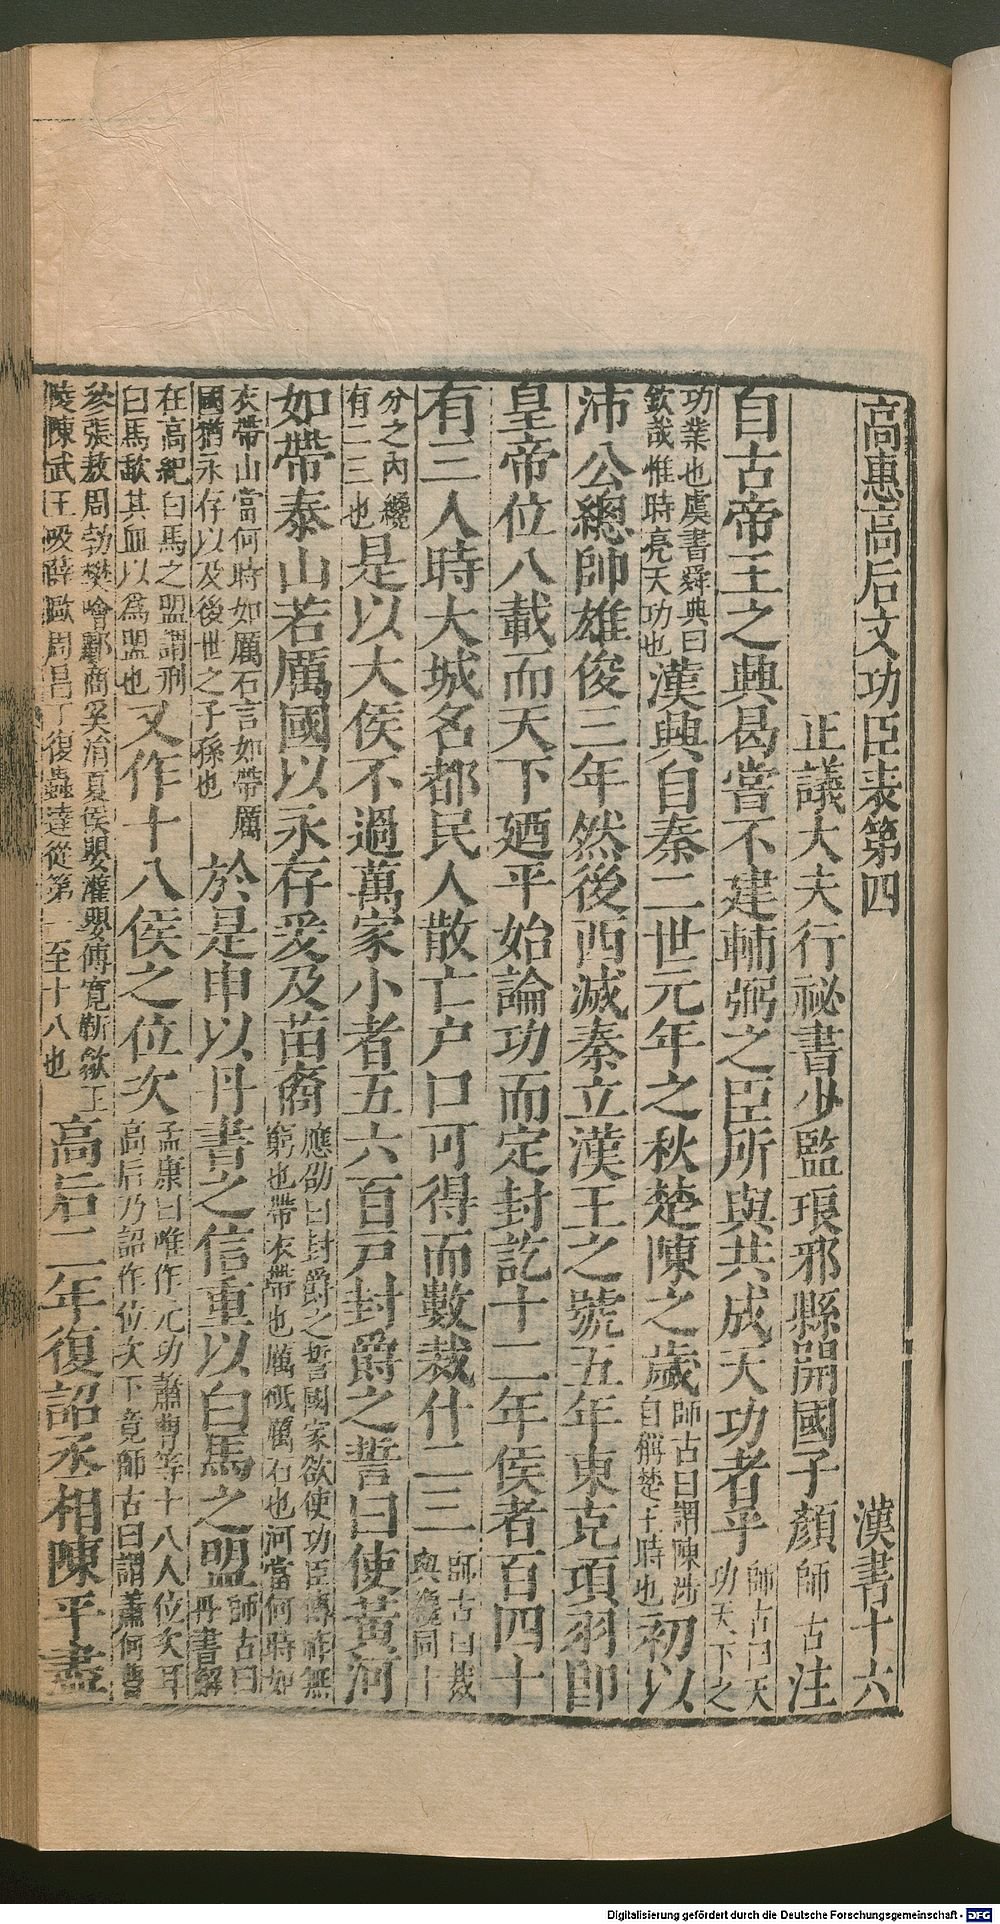 高惠高后文功臣表第四 漢書十六
正議大夫行祕書少監琅邪縣開國子顏師古注
自古帝王之興曷嘗不建輔弼之臣所與共成天功者乎師古曰天功天下之
功業也虞書舜典曰欽哉惟時亮天功也漢興自秦二世元年之秋楚陳之歲師古曰謂陳涉自稱楚王時也初以
沛公總帥雄俊三年然後西滅秦立漢王之號五年東克項羽即
皇帝位八載而天下迺平始論功而定封訖十二年侯者百四十
有三人時大城名都民人散亡户口可得而數裁什二三師古曰裁與纔同十
分之內纔有二三也是以大侯不過萬家小者五六百戸封爵之誓曰使黃河
如帶泰山若厲國以永存爰及苗裔應劭曰封爵之誓國家欲使功臣傳祚無窮也帶衣帶也厲砥厲石也河當何時如
衣帶山當何時如厲石言如帶厲國猶永存以及後世之子孫也於是申以丹書之信重以白馬之盟師古曰丹書解
在高紀白馬之盟謂刑白馬歃其血以為盟也又作十八侯之位次孟康曰唯作元功蕭曹等十八人位次耳高后乃詔作位次下竟師古曰謂蕭何曹
參張敖周勃樊噲酈商奚涓夏侯嬰灌嬰傅寬靳歙王陵陳武王吸薛歐周昌丁復蟲達從第一至十八也高后二年復詔丞相陳平盡
Digitalisierung gefördert durch die Deutsche Forschungsgemeinschaft - DFG